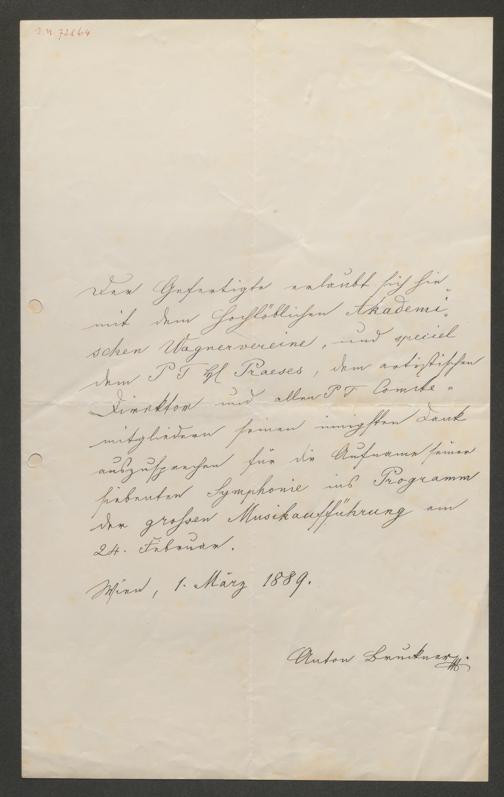 I.N. 72864
Der Gefertigte erlaubt sich hie-
mit dem hochlöblichen Akademi-
schen Wagnervereine, und speciel
dem P T Hℓ Praeses, dem artistischen
Direktor und allen P T Comite-
mitgliedern seinen innigsten Dank
auszusprechen für die Aufname seiner
siebenten Symphonie ins Programm
der grossen Musikaufführung am
24. Februar.
Wien, 1. März 1889.
Anton Bruckner